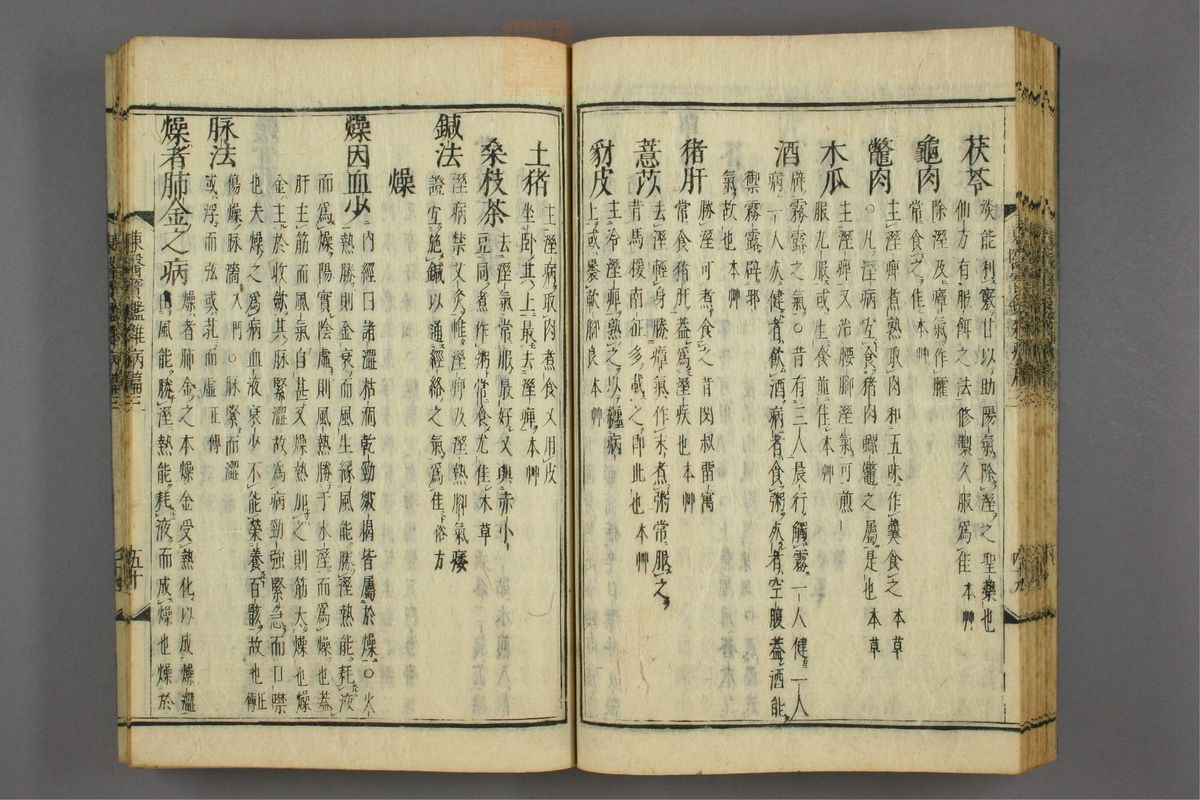 茯苓 淡能利竅甘以助陽氣除溼之聖藥也
仙方有服餌之法修製久服爲佳本艸
龜肉 除溼及瘴氣作臛
常食之佳本艸
鼈肉 主溼痺煮熟取肉和五味作羹食之本草
○凡溼病宜食猪肉螺鼈之屬是也本草
木瓜 主溼痺又治腰脚溼氣可煎
服丸服或生食並佳本艸
酒 辟霧露之氣○昔有三人晨行觸霧一人健一人
病一人死健者飮酒病者食粥死者空腹蓋酒能
禦霧露辟邪
氣故也本艸
猪肝 勝溼可煮食之昔閔叔雷寓
常食猪肝蓋爲溼疾也本艸
薏苡 去溼輕身勝瘴氣作末煮粥常服之
昔馬援南征多載之卽此也本艸
豺皮 主冷溼痺熟之以纏病
上或纍軟脚良本艸
土猪 主溼病取肉煮食又用皮
坐臥其上最去溼痺本艸
桑枝茶 去溼氣常服最好又與赤小
豆同煮作粥常食尤佳本草
鍼法 溼病禁艾灸惟溼痺及溼熱脚氣痿
證宜施鍼以通經絡之氣爲佳俗方
燥
燥因血少 內經曰諸澁枯涸乾勁皴揭皆屬於燥○火
熱勝則金衰而風生緣風能勝溼熱能耗液
而爲燥陽實陰虛則風熱勝于水溼而爲燥也蓋
肝主筋而風氣自甚又燥熱加之則筋大燥也燥
金主於收歛其脉緊澁故爲病勁強緊急而口噤
也夫燥之爲病血液衰少不能榮養百骸故也正傳
脉法 傷燥脉澁入門○脉緊而澁
或浮而弦或芤而虛正傳
燥者肺金之病 燥者肺金之本燥金受熱化以成燥澁
由風能勝溼熱能耗液而成燥也燥於
東醫寶鑑雜病篇三
五十